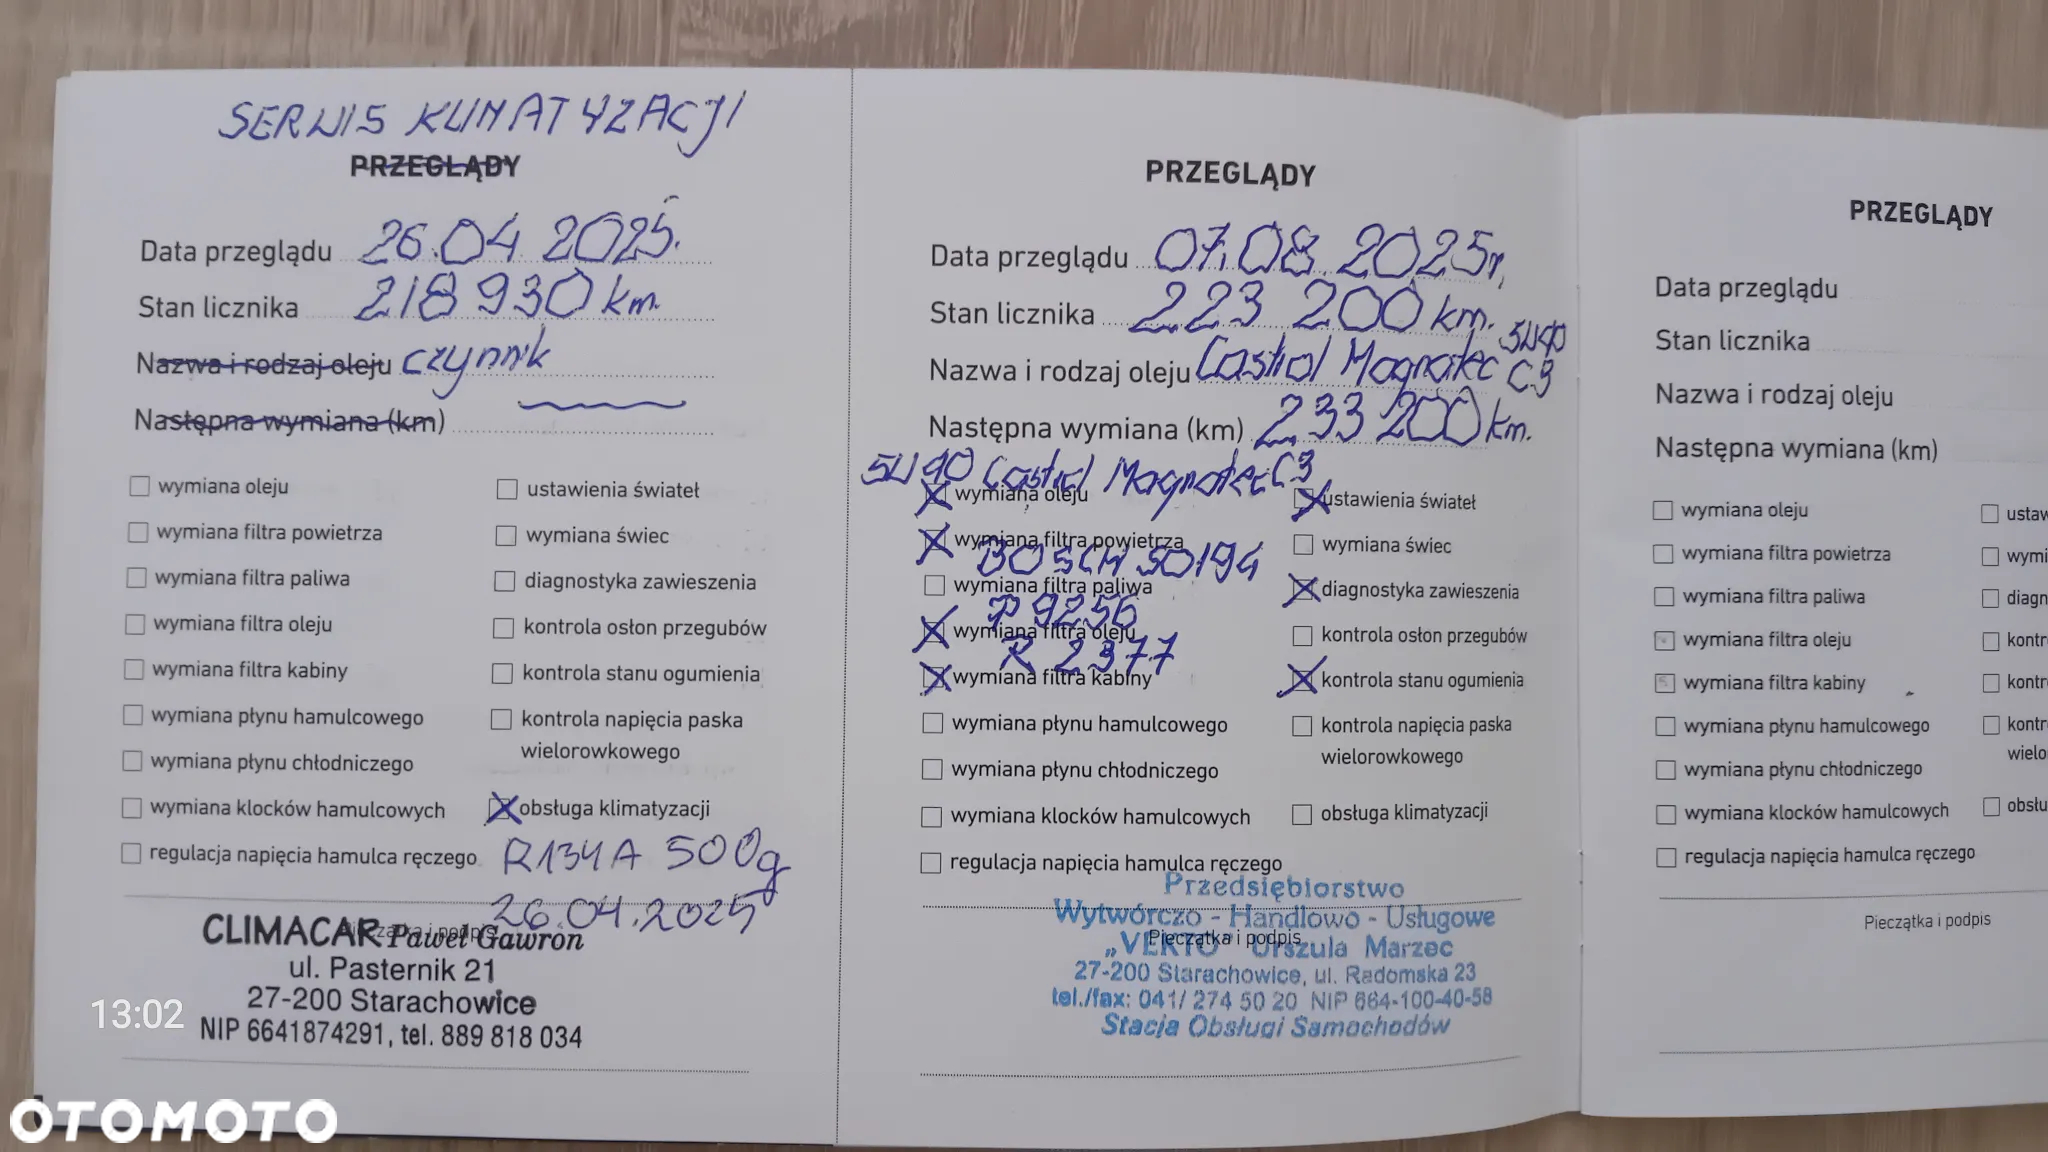 SERWIS KLIMATYZACJI
PRZEGLĄDY
Data przeglądu 26.04.2025.
Stan licznika 218 930 km.
Nazwa i rodzaj oleju czynnik
Następna wymiana (km)
wymiana oleju
wymiana filtra powietrza
wymiana filtra paliwa
wymiana filtra oleju
wymiana filtra kabiny
wymiana płynu hamulcowego
wymiana płynu chłodniczego
wymiana klocków hamulcowych
regulacja napięcia hamulca ręczego
ustawienia świateł
wymiana świec
diagnostyka zawieszenia
kontrola osłon przegubów
kontrola stanu ogumienia
kontrola napięcia paska
wielorowkowego
obsługa klimatyzacji
R134A 500g
26.04.2025
Pieczątka i podpis
CLIMACAR Paweł Gawron
ul. Pasternik 21
27-200 Starachowice
NIP 6641874291, tel. 889 818 034
13:02
OTOMOTO
PRZEGLĄDY
Data przeglądu 07.08.2025r,
Stan licznika 223 200 km.
5W40
Nazwa i rodzaj oleju Castrol Magnatec C3
Następna wymiana (km) 233 200 km.
5W40 Castrol Magnatec C3
wymiana oleju
wymiana filtra powietrza
BOSCH S0194
wymiana filtra paliwa
P 9256
wymiana filtra oleju
R 2377
wymiana filtra kabiny
wymiana płynu hamulcowego
wymiana płynu chłodniczego
wymiana klocków hamulcowych
regulacja napięcia hamulca ręczego
ustawienia świateł
wymiana świec
diagnostyka zawieszenia
kontrola osłon przegubów
kontrola stanu ogumienia
kontrola napięcia paska
wielorowkowego
obsługa klimatyzacji
Przedsiębiorstwo
Wytwórczo - Handlowo - Usługowe
Pieczątka i podpis
„VEKTO" Urszula Marzec
27-200 Starachowice, ul. Radomska 23
tel./fax: 041/ 274 50 20 NIP 664-100-40-58
Stacja Obsługi Samochodów
PRZEGLĄDY
Data przeglądu
Stan licznika
Nazwa i rodzaj oleju
Następna wymiana (km)
wymiana oleju
wymiana filtra powietrza
wymiana filtra paliwa
wymiana filtra oleju
wymiana filtra kabiny
wymiana płynu hamulcowego
wymiana płynu chłodniczego
wymiana klocków hamulcowych
regulacja napięcia hamulca ręczego
ustaw
wymi
diagn
kontr
kontr
kontr
wielo
obsłu
Pieczątka i podpis